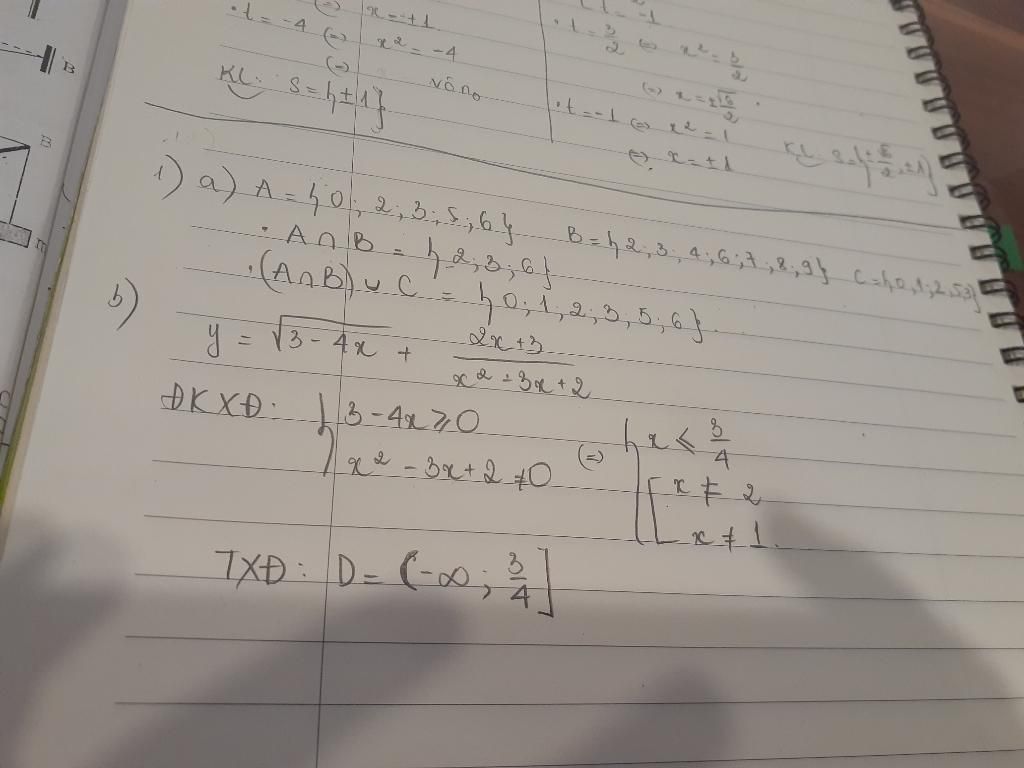 (=) x = ±1
• t = -4 (=) x² = -4
(=) vô nₒ
KL: S = {±1}
t = -1
• t = 3/2 (=) x² = 3/2
(=)
• t = -1 (=) x² = 1
(=) x = ±1
KL:
1) a) A = {0; 2; 3; 5; 6} B = {2; 3; 4; 6; 7; 8; 9}
• A ∩ B = {2; 3; 6}
• (A ∩ B) ∪ C = {0; 1; 2; 3; 5; 6}
b)
y = √(3 - 4x) + (2x+3)/(x² - 3x + 2)
ĐKXĐ: { 3 - 4x ⩾ 0 (=) { x ⩽ 3/4
x² - 3x + 2 ≠ 0 [ x ≠ 2
x ≠ 1.
TXĐ: D = (-∞; 3/4]
B
B
m